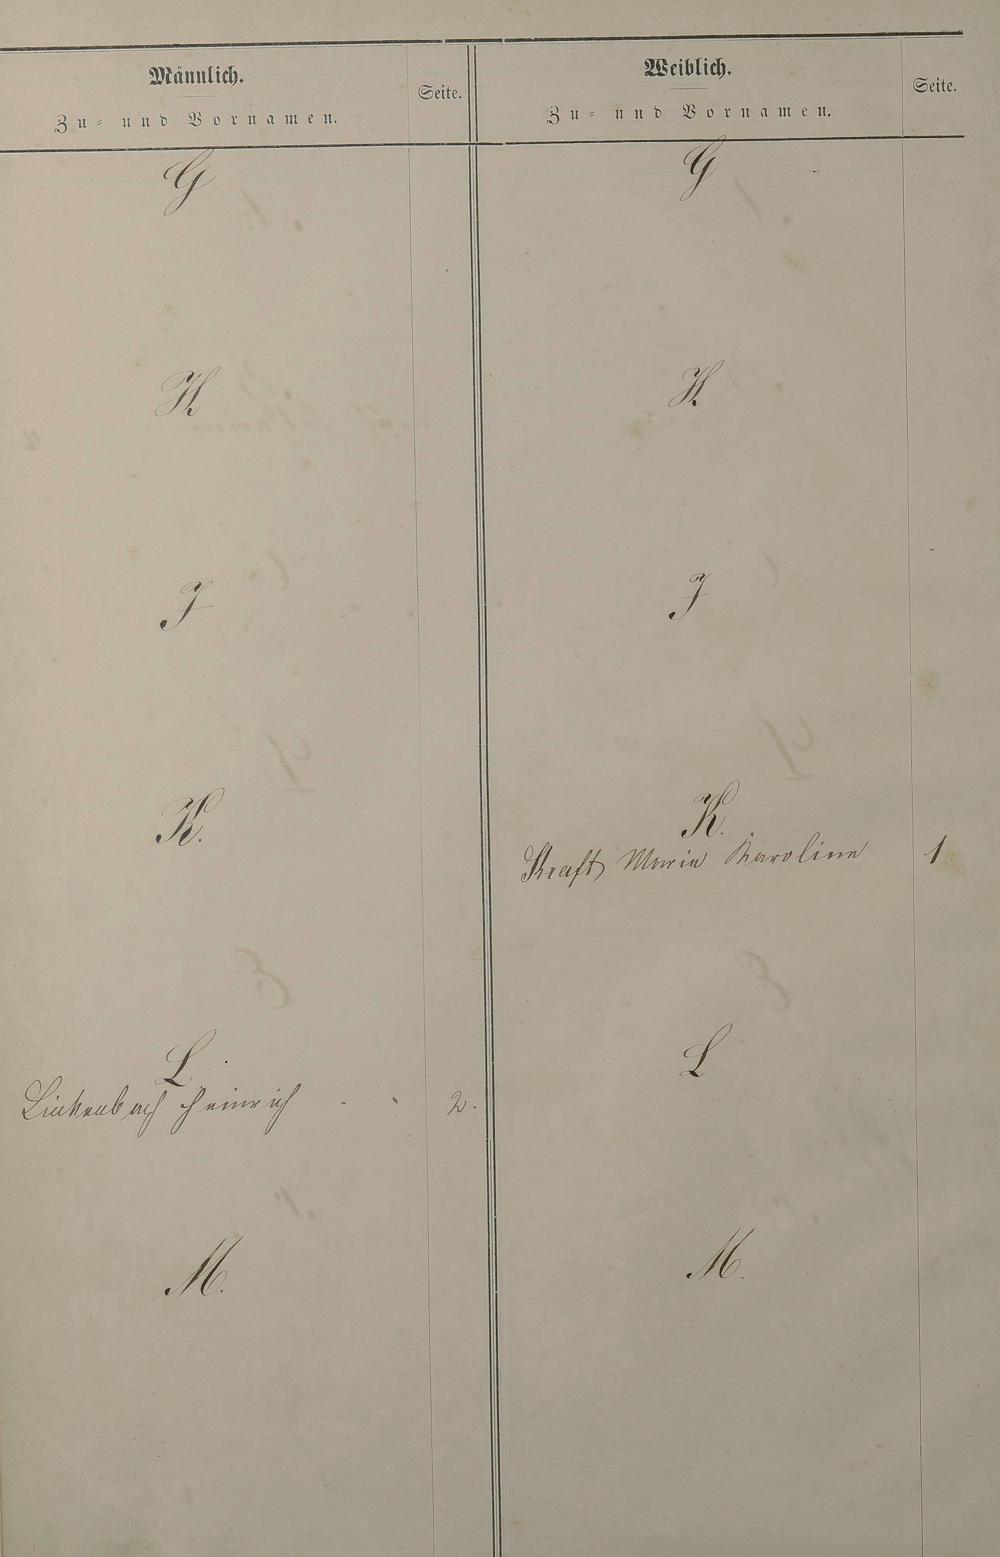 Männlich.
Zu- und Vornamen.
Seite.
Weiblich.
Zu- und Vornamen.
Seite.
G
G
H
H
J
J
K.
K.
Kraft Maria Karoline 1
L.
L
Linkenbach Heinrich - - 2.
M.
M.